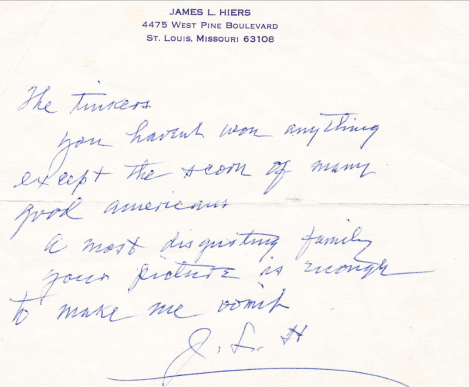 JAMES L. HIERS
4475 WEST PINE BOULEVARD
ST. LOUIS, MISSOURI 63108
The Tinkers
you havent won anything
except the scorn of many
good americans
a most disgusting family
your picture is enough
to make me vomit
J. L. H